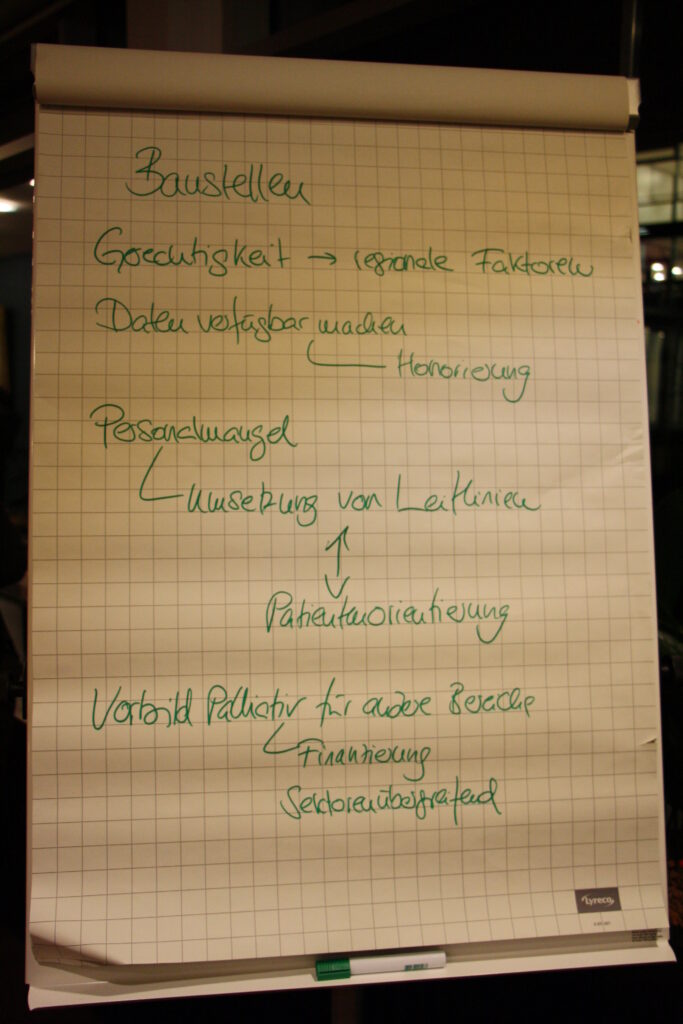 Baustellen
Gerechtigkeit → regionale Faktoren
Daten verfügbar machen
Honorierung
Personalmangel
Umsetzung von Leitlinien
Patientenorientierung
Vorbild Palliativ für andere Bereiche
Finanzierung
Sektorenübergreifend
Lyreco